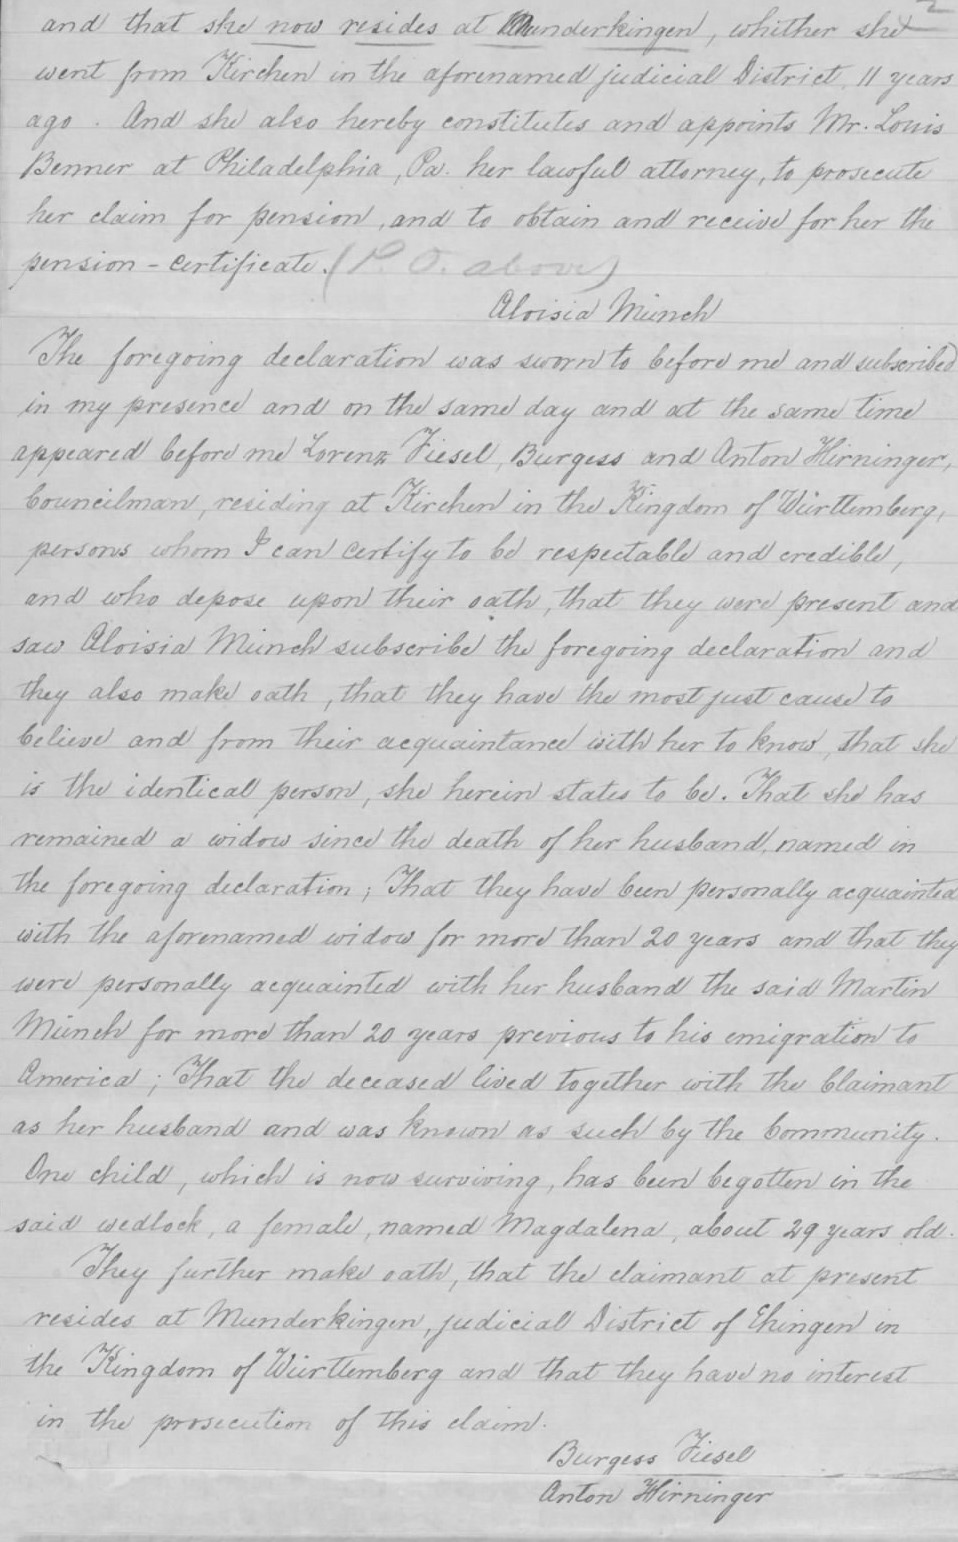 2
and that she now resides at Munderkingen, whither she
went from Kirchen in the aforenamed judicial District, 11 years
ago. And she also hereby constitutes and appoints Mr. Louis
Benner at Philadelphia, Pa. her lawful attorney, to prosecute
her claim for pension, and to obtain and receive for her the
pension-certificate. (P. O. above)
Aloisia Münch
The foregoing declaration was sworn to before me and subscribed
in my presence and on the same day and at the same time
appeared before me Lorenz Fiesel, Burgess and Anton Hirninger,
Councilman, residing at Kirchen in the Kingdom of Württemberg,
persons whom I can certify to be respectable and credible,
and who depose upon their oath, that they were present and
saw Aloisia Münch subscribe the foregoing declaration and
they also make oath, that they have the most just cause to
believe and from their acquaintance with her to know, that she
is the identical person, she herein states to be. That she has
remained a widow since the death of her husband, named in
the foregoing declaration; That they have been personally acquainted
with the aforenamed widow for more than 20 years and that they
were personally acquainted with her husband the said Martin
Münch for more than 20 years previous to his emigration to
America; That the deceased lived together with the Claimant
as her husband and was known as such by the Community.
One child, which is now surviving, has been begotten in the
said wedlock, a female, named Magdalena, about 29 years old.
They further make oath, that the claimant at present
resides at Munderkingen, judicial District of Ehingen in
the Kingdom of Württemberg and that they have no interest
in the prosecution of this claim.
Burgess Fiesel
Anton Hirninger